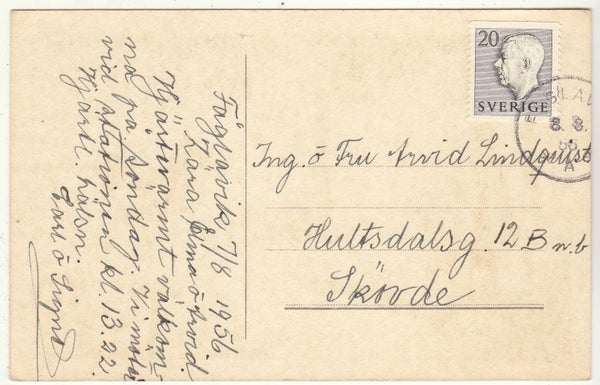 Fåglavik 7/8 1956
Kära Erna o Arvid
Hjärtvarmt välkom-
na på Söndag. Vi möter
vid stationen kl. 13.22.
Hjärtl. hälsn.
Carl o Signe
20
SVERIGE
8. 8.
56
A
Ing. o Fru Arvid Lindquist
Hultsdalsg. 12 B n.b
Skövde